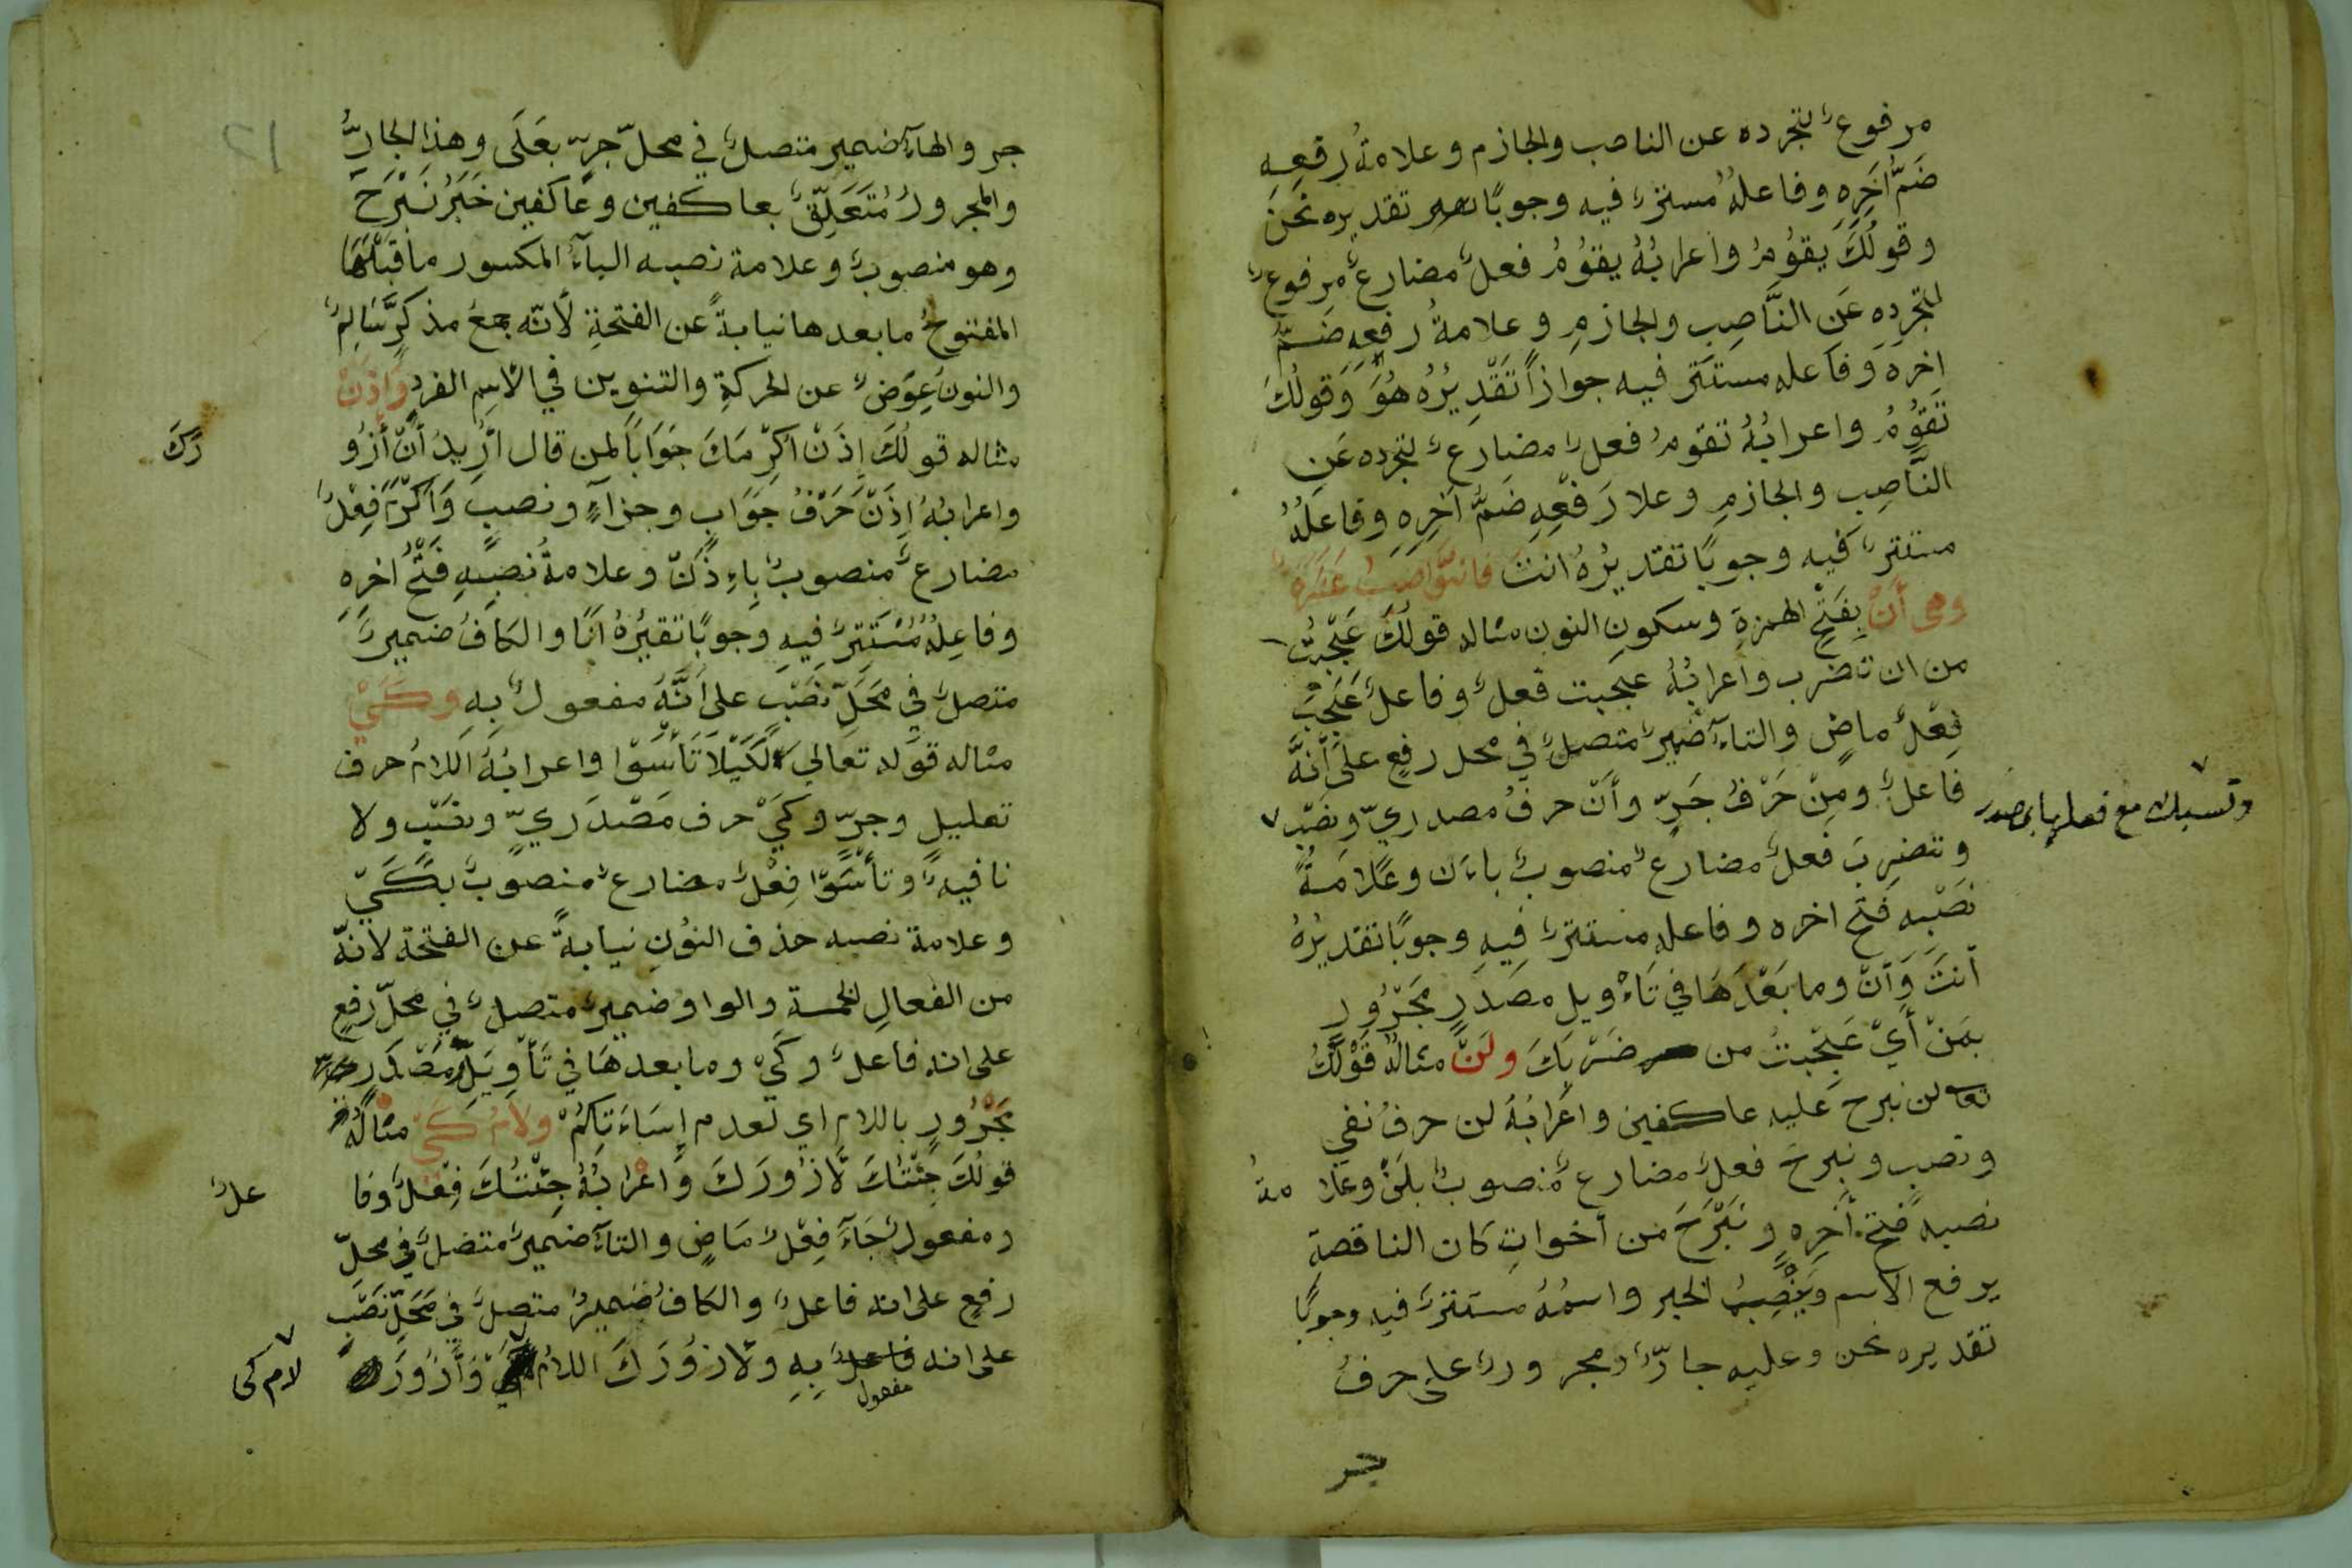 مرفوع لتجرده عن الناصب والجازم وعلامةُ رفعِهِ
ضَمُّ اَخِرِهِ وفاعلهُ مستترٌ فيه وجوبًا تقديره نحنُ
وقولُكَ يَقوُمُ واعرابُهُ يقوُمُ فعلٌ مضارعٌ مرفوعٌ
لتجردِهِ عَنِ النَّاصِبِ والجازمِ وعلامةُ رفعِهِ ضَمُّ
اخرِهِ وَفاعله مستَتر فيه جوازاً تَقْدِيْرُهُ هُوَ وَقولُكَ
تَقوُمُ واعرابُهُ تقومُ فعلٌ مضارعٌ لتجرده عَنِ
النَّاصِبِ والجازمِ وعلا رَفْعِهِ ضَمُّ اَخِرِهِ وفاعلُهُ
مستترٌ فيه وجوبًا تقديرُهُ انتَ فالنَّوَاصِبُ عَشَرَةٌ
وهي أَنْ بِفَتْحِ الهمزةِ وسكونِ النون مثاله قولُكَ عَجِبْتُ
من ان تضرب واعرابُهُ عجبت فعلٌ وفاعلٌ عَجِبَ
فِعْلٌ ماضٍ والتاءَ ضميرٌ متصلٌ في محل رفعٍ علىَ اَنَّهُ
فاعلٌ ومِنْ حَرْفُ جَرٍّ وأَنْ حرفُ مصدريّ ونصْبٍ
وتسبك مع فعلها بمصدر
وتضرِبَ فعلٌ مضارعٌ منصوبٌ بأن وعَلامَةُ
نَصْبِهِ فَتْحُ اخره وفاعله مستترٌ فِيهِ وجوبًا تقديرُهُ
أنتَ وَأَنْ وما بَعْدَهَا في تَاءْويل مصَدَرٍ مَجَرْوُرٍ
بمَنْ أَيْ عَجِبْتُ من ضَرْبِكَ ولَنْ مثالُه قَوْلُكُ
تعالى لن نبرح عَليه عاكفين واعْرابُهُ لن حرفُ نفي
ونصبٍ ونبرحَ فعلٌ مضارعٌ مَنصوبٌ بلَنْ وعلا مةُ
نصبه فتحُ أَخِرِهِ ونَبْرَحَ من أخواتِ كان الناقصةِ
يرفع الاسم وَيَنْصِبُ الخبر واسمُهُ مستترٌ فيه وجوبًا
تقديره نحن وعليه جارٌّ ومجرورٌ على حرفُ
جر
جر والهآءَ ضمير متصلٌ في محلّ جرٍّ بعَلَى وهذا الجارُّ
والمجرورُ مُتَعَلِّقٌ بعاكفين وعَاكفين خَبَرُ نَبْرَحَ
وهو منصوبٌ وعلامة نصبه اليآءُ المكسور ما قبلَهَا
المفتوحُ ما بعدها نيابةً عن الفتحةِ لأنّه جمعُ مذكرٍ سَالِمٌ
والنونُ عِوَضٌ عن الحركةِ والتنوين في الاسِمِ المفردِ وَاِذَنْ
مثاله قولُكَ اِذَنْ اكرِمَكَ جَوَابًا لمن قال أرِيدُ أَنْ أَزُو
رَكَ
واعرابُهُ اِذَنْ حَرْفُ جَوَابٍ وجزاءٍ ونصبٍ وَاَكرِمَ فِعْلٌ
مضارعٌ منصوبٌ بِاِذَنْ وعلامةُ نَصبِهِ فَتْحُ اخرِهِ
وفاعِلُهُ مُسْتَتِرٌ فِيهِ وجوبًا تقيرُهُ اَنَا والكَافُ ضميرٌ
متصلٌ في مَحَلّ نَصْبٍ على اَنَّهُ مفعولٌ بهِ وكَيْ
مثاله قوله تعالي لِكَيْلاَ تَأْسَوْا واعرابُهُ اَللامُ حرف
تعليل وجرّ وكَيْ حرف مَصْدَريّ ونصْبٍ ولا
نافيةٌ وتأسَوْا فِعْلٌ مضارعٌ منصوبٌ بكَيْ
وعلامة نصبه حذف النوُنِ نيابةً عن الفتحة لأنّهُ
من الفعالِ الخمسة والواو ضميرٌ متصلٌ في محلّ رفعٍ
على انه فاعلٌ وكَيْ وما بعدهَا في تَأْوِيلِ مَصْدَرٍ
مَجْرُورٍ باللام اي لعدم اِسَاءَتِكُمْ ولامُ كَيْ مثالُهُ
قولُكَ جِئْتُكَ لأزُورَكَ وَاعْرابُهُ جِئْتُكَ فِعْلٌ وفا
علٌ
ومفعولٌ جَآءَ فِعْلٌ مَاضٍ والتآءَ ضميرٌ متصلٌ في محلّ
رفعٍ على انه فاعلٌ والكافُ ضميرٌ متصلٌ في مَحَلّ نَصْبٍ
على انه فاعلٌ بِهِ ولأزوُرَكَ اللامُ وَأَزُورَ
مفعول
لام كى